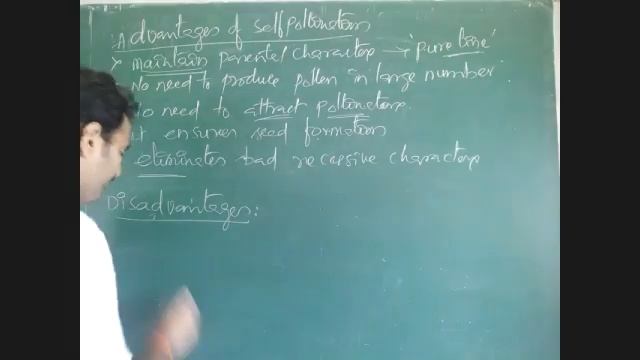 Advantages of self pollination
> maintain parental characters → 'pure line'
No need to produce pollen in large number.
No need to attract pollinators.
It ensures seed formation
eliminates bad recessive characters
Disadvantages: